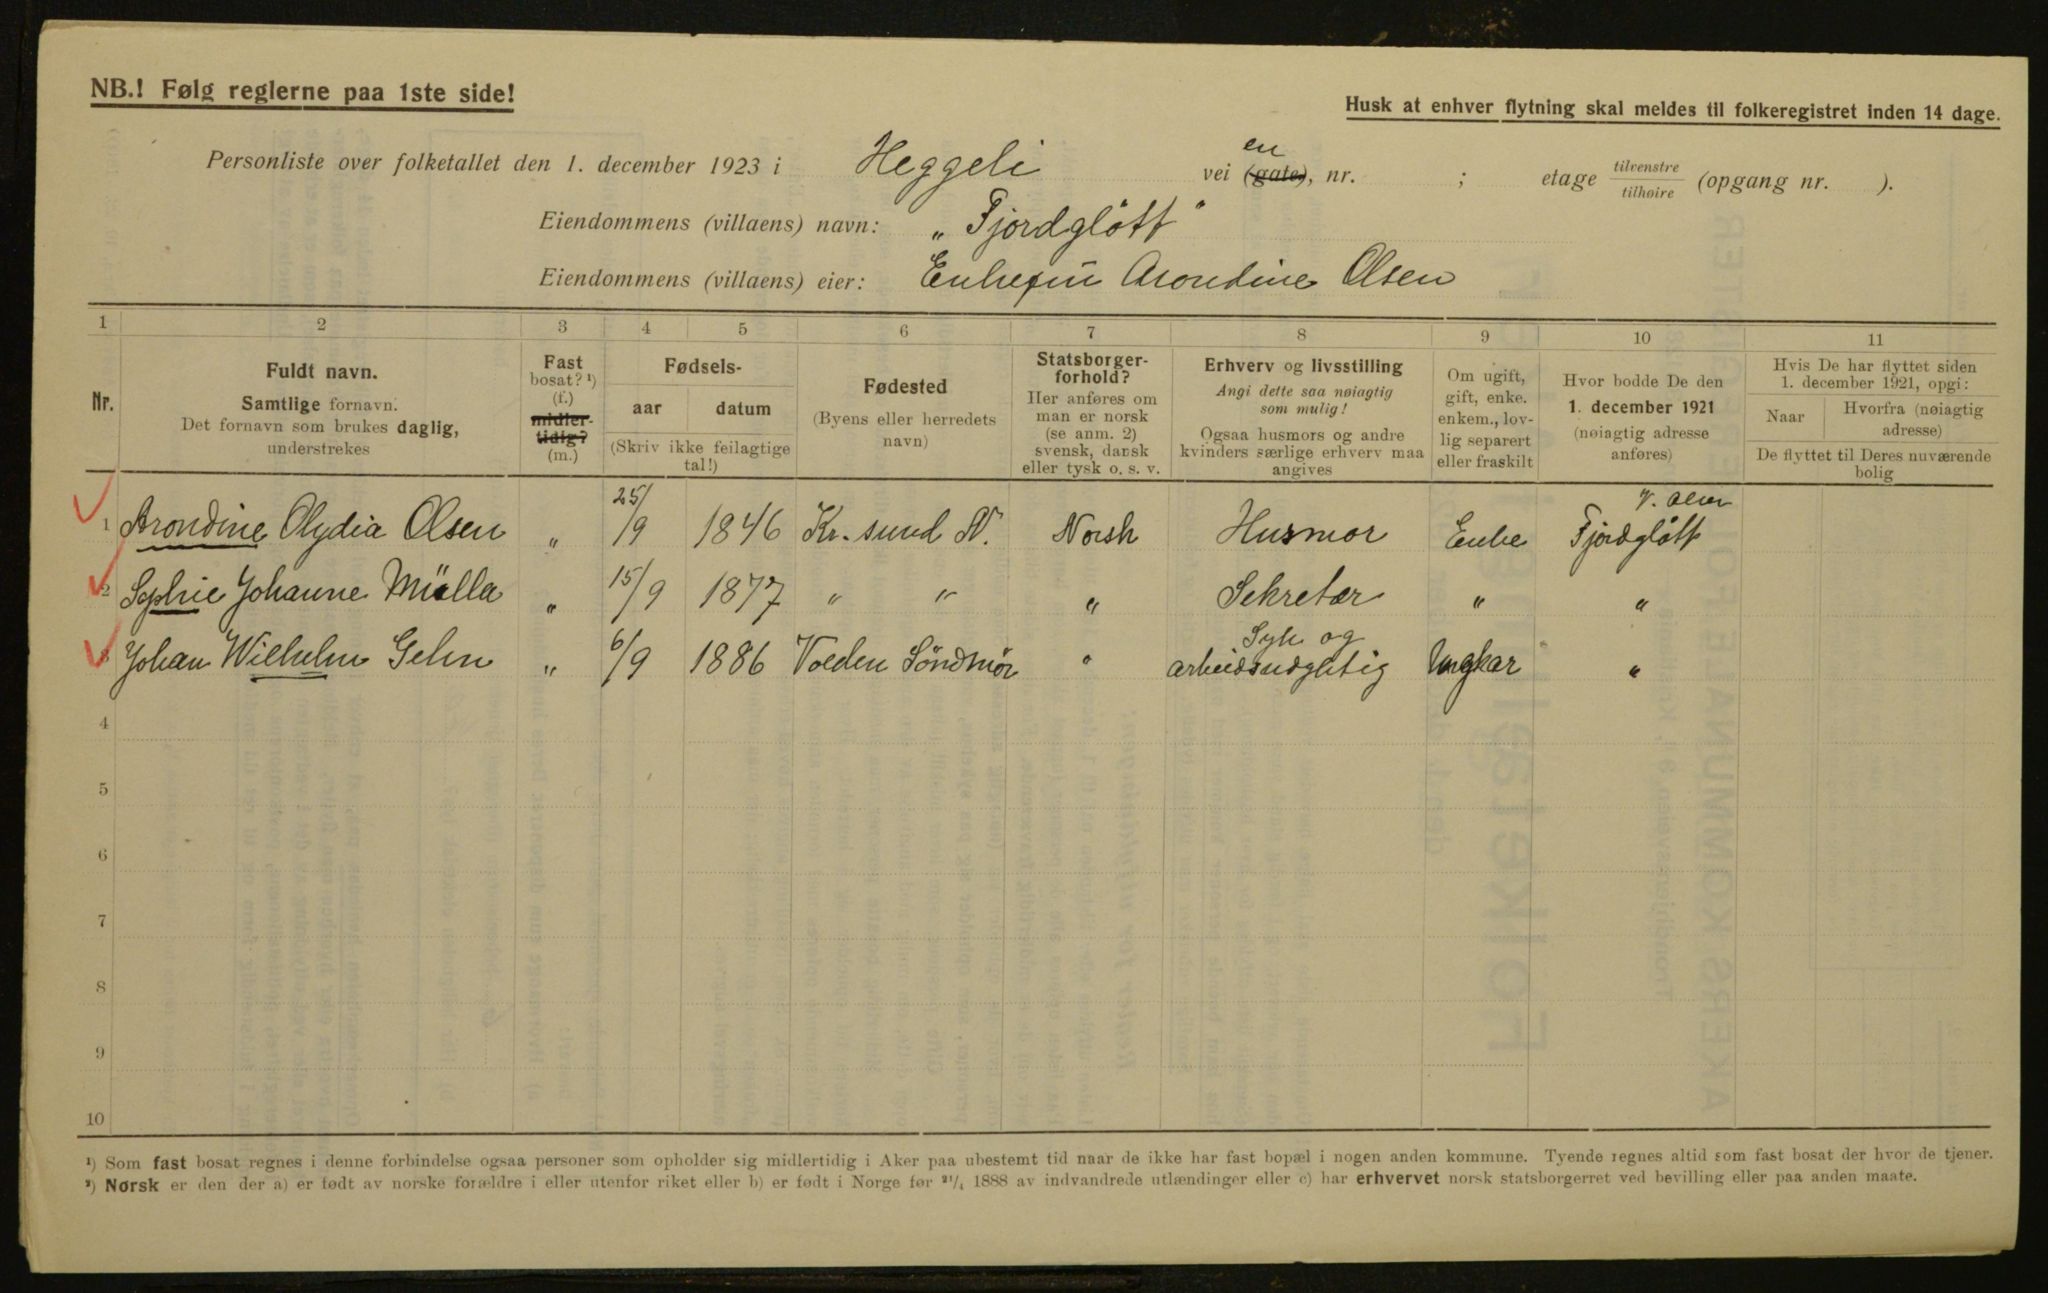 NB.! Følg reglerne paa 1ste side!
Husk at enhver flytning skal meldes til folkeregistret inden 14 dage.
Personliste over folketallet den 1. december 1923 i Heggeli veien (gate), nr. ; etage tilvenstre tilhøire (opgang nr. ).
Eiendommens (villaens) navn: „ Fjordglött "
Eiendommens (villaens) eier: Enkefru Arondine Olsen
1 2 3 4 5 6 7 8 9 10 11
Nr.
Fuldt navn.
Samtlige fornavn.
Det fornavn som brukes daglig,
understrekes
Fast
bosat? ¹)
(f.)
midler-
tidig?
(m.)
Fødsels-
aar datum
(Skriv ikke feilagtige
tal!)
Fødested
(Byens eller herredets
navn)
Statsborger-
forhold?
Her anføres om
man er norsk
(se anm. 2)
svensk, dansk
eller tysk o. s. v.
Erhverv og livsstilling
Angi dette saa nøiagtig
som mulig!
Ogsaa husmors og andre
kvinders særlige erhverv maa
angives
Om ugift,
gift, enke.
enkem., lov-
lig separert
eller fraskilt
Hvor bodde De den
1. december 1921
(nøiagtig adresse
anføres)
Hvis De har flyttet siden
1. december 1921, opgi:
Naar
Hvorfra (nøiagtig
adresse)
De flyttet til Deres nuværende
bolig
1 Arondine Olydia Olsen „ 25/9 1846 Kr. sund N. Norsk Husmor Enke Fjordglött
2 Sophie Johanne Müller „ 15/9 1877 „ „ „ Sekretær „ „
3 Johan Wilhelm „ 6/9 1886 Volden Söndmör „ Syk og arbeidsudygtig Ungkar „
4
5
6
7
8
9
10
¹) Som fast bosat regnes i denne forbindelse ogsaa personer som opholder sig midlertidig i Aker paa ubestemt tid naar de ikke har fast bopæl i nogen anden kommune. Tyende regnes altid som fast bosat der hvor de tjener.
²) Norsk er den der a) er født av norske forældre i eller utenfor riket eller b) er født i Norge før ²¹/₄ 1888 av indvandrede utlændinger eller c) har erhvervet norsk statsborgerret ved bevilling eller paa anden maate.